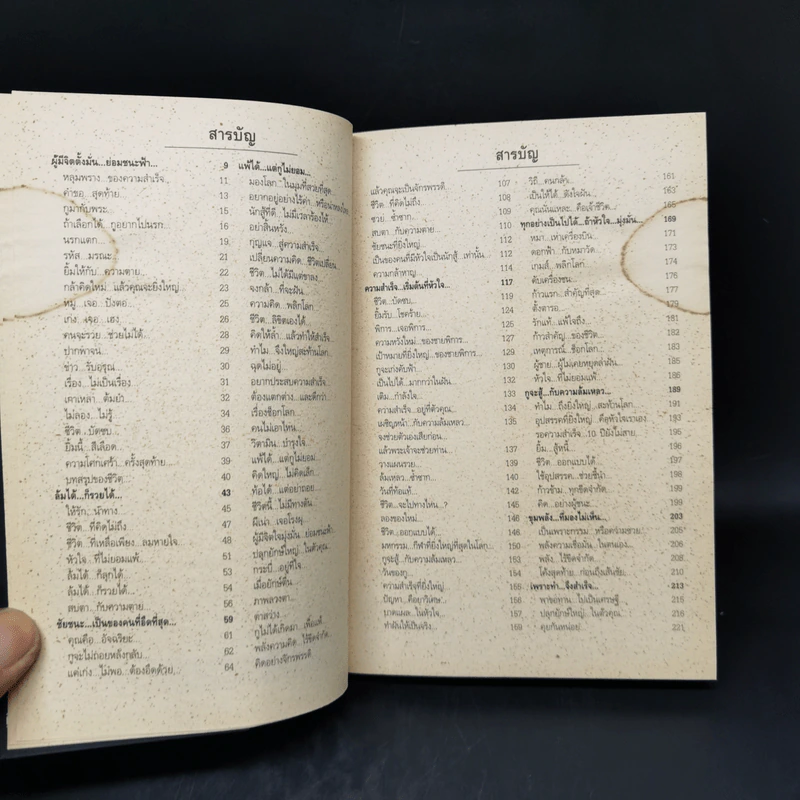 สารบัญ
ผู้มีจิตตั้งมั่น...ย่อมชนะฟ้า... 9
หลุมพราง...ของความสำเร็จ... 11
คำขอ...สุดท้าย... 13
กูมากับพระ... 15
ถ้าเลือกได้...กูอยากไปนรก... 17
นรกแตก... 19
รหัส...มรณะ... 21
ยิ้มให้กับ...ความตาย... 22
กล้าคิดใหม่...แล้วคุณจะยิ่งใหญ่... 23
หมู...เจอ...ปังตอ... 24
เก่ง...เจอ...เฮง... 26
คนจะรวย...ช่วยไม่ได้... 28
ปากพาจน... 29
ข่าว...รับอรุณ... 30
เรื่อง...ไม่เป็นเรื่อง... 31
เตาเหล้า...ต้มยำ... 32
ไม่ลอง...ไม่รู้... 34
ชีวิต...บัดซบ... 36
ยิ้มนี้...สีเลือด... 37
ความโศกเศร้า...ครั้งสุดท้าย... 39
บทสรุปของชีวิต... 40
ล้มได้...ก็รวยได้... 43
ให้รัก...นำทาง... 45
ชีวิต...ที่คิดไม่ถึง... 47
ชีวิต...ที่เหลือเพียง...ลมหายใจ... 48
หัวใจ...ที่ไม่ยอมแพ้... 51
ล้มได้...ก็ลุกได้... 53
ล้มได้...ก็รวยได้... 54
สบตา...กับความตาย... 56
ชัยชนะ...เป็นของคนที่อึดที่สุด... 59
คุณคือ...อัจฉริยะ... 61
กูจะไม่ถอยหลังกลับ... 62
แค่เก่ง...ไม่พอ...ต้องอึดด้วย... 64
แพ้ได้...แต่กูไม่ยอม...
มองโลก...ในมุมที่สวยที่สุด...
อยากอยู่อย่างไร้ค่า...หรือ
นักสู้ที่ดี...ไม่มีเวลาร้องไห้...
อย่าสิ้นหวัง...
กุญแจ...สู่ความสำเร็จ...
เปลี่ยนความคิด...ชีวิตเปลี่ยน...
ชีวิต...ไม่ได้มีแต่ขาลง...
จงกล้า...ที่จะฝัน...
ความคิด...พลิกโลก...
ชีวิต...ลิขิตเองได้...
คิดให้ล้ำ...แล้วทำให้สำเร็จ...
ทำไม...จึงใหญ่สะท้านโลก...
ฉุดไม่อยู่...
อยากประสบความสำเร็จ...
ต้องแตกต่าง...และดีกว่า...
เรื่องช็อกโลก...
คนไม่เอาไหน...
วิตามิน...บำรุงใจ...
แพ้ได้...แต่กูไม่ยอม...
คิดใหญ่...ไม่คิดเล็ก...
ท้อได้...แต่อย่าถอย...
ชีวิตนี้...ไม่มีทางตัน...
ผีเน่า...เจอโรงผุ...
ผู้มีจิตใจมุ่งมั่น...ย่อมชนะฟ้า...
ปลุกยักษ์ใหญ่...ในตัวคุณ...
กระบี่...อยู่ที่ใจ...
เมื่อยักษ์ตื่น...
ภาพลวงตา...
ตาสว่าง...
กูไม่ได้เกิดมา...เพื่อแพ้...
พลังความคิด...ไร้ขีดจำกัด...
คิดอย่างจักรพรรดิ...
สารบัญ
แล้วคุณจะเป็นจักรพรรดิ... 107
ชีวิต...ที่คิดไม่ถึง... 108
ซวย...ซ้ำซาก... 109
สบตา...กับความตาย... 110
ชัยชนะที่ยิ่งใหญ่... 112
เป็นของคนที่มีหัวใจเป็นนักสู้...เท่านั้น...
ความกล้าหาญ... 114
ความสำเร็จ...เริ่มต้นที่หัวใจ... 117
ชีวิต...บัดซบ...
ยิ้มรับ...โชคร้าย...
พิการ...เจอพิการ...
ความหวังใหม่...ของชายพิการ...
เป้าหมายที่ยิ่งใหญ่...ของชายพิการ...
กูจะเก่งดับฟ้า... 130
เป็นไปได้...มากกว่าในฝัน... 132
เติม...กำลังใจ... 133
ความสำเร็จ...อยู่ที่ตัวคุณ... 134
เผชิญหน้า...กับความล้มเหลว... 135
จงช่วยตัวเองเสียก่อน...
แล้วพระเจ้าจะช่วยท่าน... 137
วางแผนรวย... 139
ล้มเหลว...ซ้ำซาก... 140
วันที่ท้อแท้... 142
ชีวิต...จะไปทางไหน...? 145
ลองของใหม่... 146
ชีวิต...ออกแบบได้... 148
มหกรรม...กีฬาที่ยิ่งใหญ่ที่สุดในโลก... 150
กูจะสู้...กับความล้มเหลว... 153
วันของกู... 154
ความสำเร็จที่ยิ่งใหญ่... 155
ปัญหา...คือยาวิเศษ... 156
เกิดแผล...ในหัวใจ... 157
ทำฝันให้เป็นจริง... 159
วิถี...คนกล้า... 161
เป็นให้ได้...ดังใจฝัน... 163
คุณนั่นแหละ...คือเจ้าชีวิต... 165
ทุกอย่างเป็นไปได้...ถ้าหัวใจ...มุ่งมั่น... 169
หมา...เห่าเครื่องบิน... 171
ดอกฟ้า...กับหมาวัด... 173
เกมส์...พลิกโลก... 174
ดับเครื่องชน... 176
ก้าวแรก...สำคัญที่สุด... 177
ตั้งตารอ... 179
รักแท้...แพ้ใจถึง... 181
ก้าวสำคัญ...ของชีวิต... 182
เหตุการณ์...ช็อกโลก... 183
ผู้ชาย...ผู้ไม่เคยหยุดล่าฝัน... 185
หัวใจ...ที่ไม่ยอมแพ้... 186
กูจะสู้...กับความล้มเหลว... 189
ทำไม...ถึงยิ่งใหญ่...สะท้านโลก... 191
อุปสรรคที่ยิ่งใหญ่...คือหัวใจเราเอง... 193
รอความสำเร็จ...10 ปียังไม่สาย... 195
ยิ้ม...สู้หนี้... 196
ชีวิต...ออกแบบได้... 197
ใช้อุปสรรค...ช่วยชี้นำ 198
ก้าวข้าม...ทุกขีดจำกัด... 199
คิด...อย่างผู้ชนะ... 199
ขุมพลัง...ที่มองไม่เห็น... 203
เป็นเพราะกรรม...หรือความชาย... 205
พลังความเชื่อมั่น...ในตนเอง... 206
พลัง...ไร้ขีดจำกัด... 208
โค้งสุดท้าย...ก่อนถึงเส้นชัย... 210
เพราะทำ...จึงสำเร็จ... 213
พาขอทาน...ไปเป็นเศรษฐี... 216
ปลุกยักษ์ใหญ่...ในตัวคุณ... 219
คุยกันหน่อย... 221